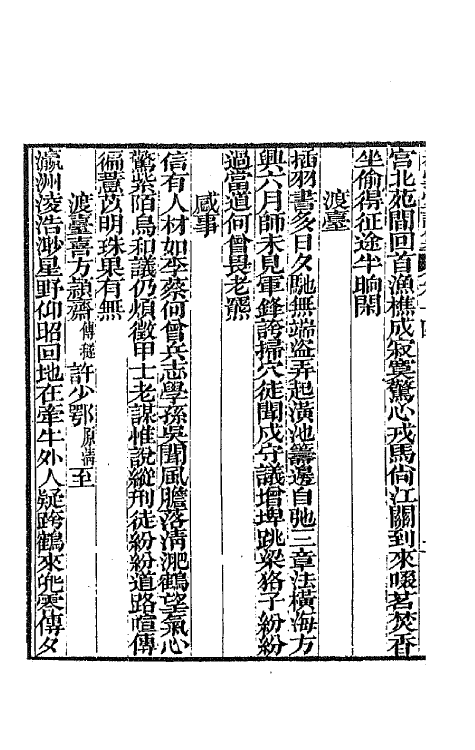 宮北苑間回首漁樵成寂寞驚心戎馬尙江關到來啜茗焚香
坐偷得征途半晌閑
渡臺
插羽書多日久馳無端盜弄起潢池籌邊自弛三章法橫海方
興六月師未見軍鋒誇掃穴徒聞戍守議增埤跳梁猺子紛紛
過當道何曾畏老羆
感事
信有人材如李蔡何曾兵志學孫吳聞風膽落淸淝鶴望氣心
驚紫陌烏和議仍煩徵甲士老謀惟說縱刑徒紛紛道路喧傳
徧薏苡明珠果有無
渡臺喜方 齋傳 許少鄂 淸至
瀛洲淩浩渺星野仰昭回地在牽牛外人疑跨鶴來兜雲傳夕